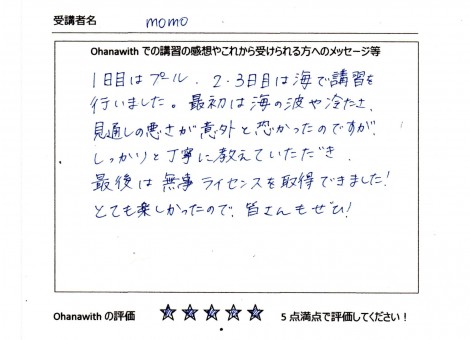 受講者名 momo
Ohanawith での講習の感想やこれから受けられる方へのメッセージ等
1日目はプール、2・3日目は海で講習を
行いました。最初は海の波や冷たさ、
見通しの悪さが意外と恐かったのですが、
しっかりと丁寧に教えていただき、
最後は無事ライセンスを取得できました!
とても楽しかったので、皆さんもぜひ!
Ohanawith の評価 ☆☆☆☆☆ 5 点満点で評価してください!